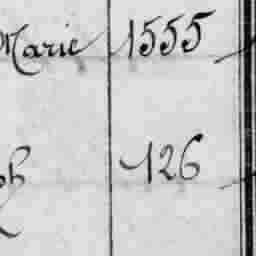 Marie 1555
ph 126